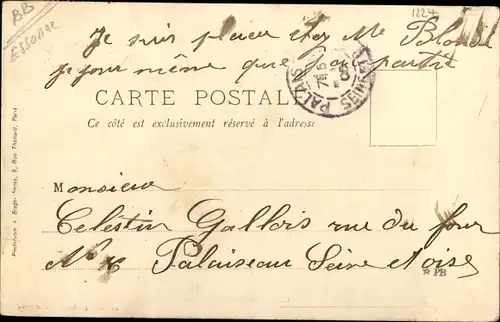 BB
Essonne
1224
Je suis placer chez Me Blond
je jour même que
partre
CARTE POSTALE
Ce côté est exclusivement réservé à l'adresse
PALAIS
SEINE
Monsieur
Celestin Gallois rue du four
No Palaiseau Seine et oise
PB
Phototypie - Berger frères, 9, Rue Thénard, Paris